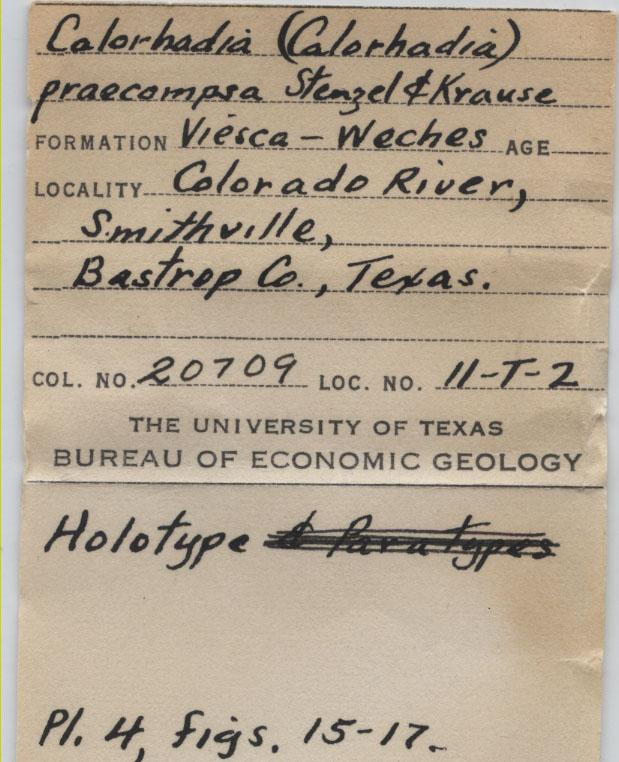 Calorhadia (Calorhadia)
praecompsa Stenzel & Krause
FORMATION Viesca - Weches AGE
LOCALITY Colorado River,
Smithville,
Bastrop Co., Texas.
COL. NO. 20709 LOC. NO. 11-T-2
THE UNIVERSITY OF TEXAS
BUREAU OF ECONOMIC GEOLOGY
Holotype & Paratypes
Pl. 4, figs. 15-17.